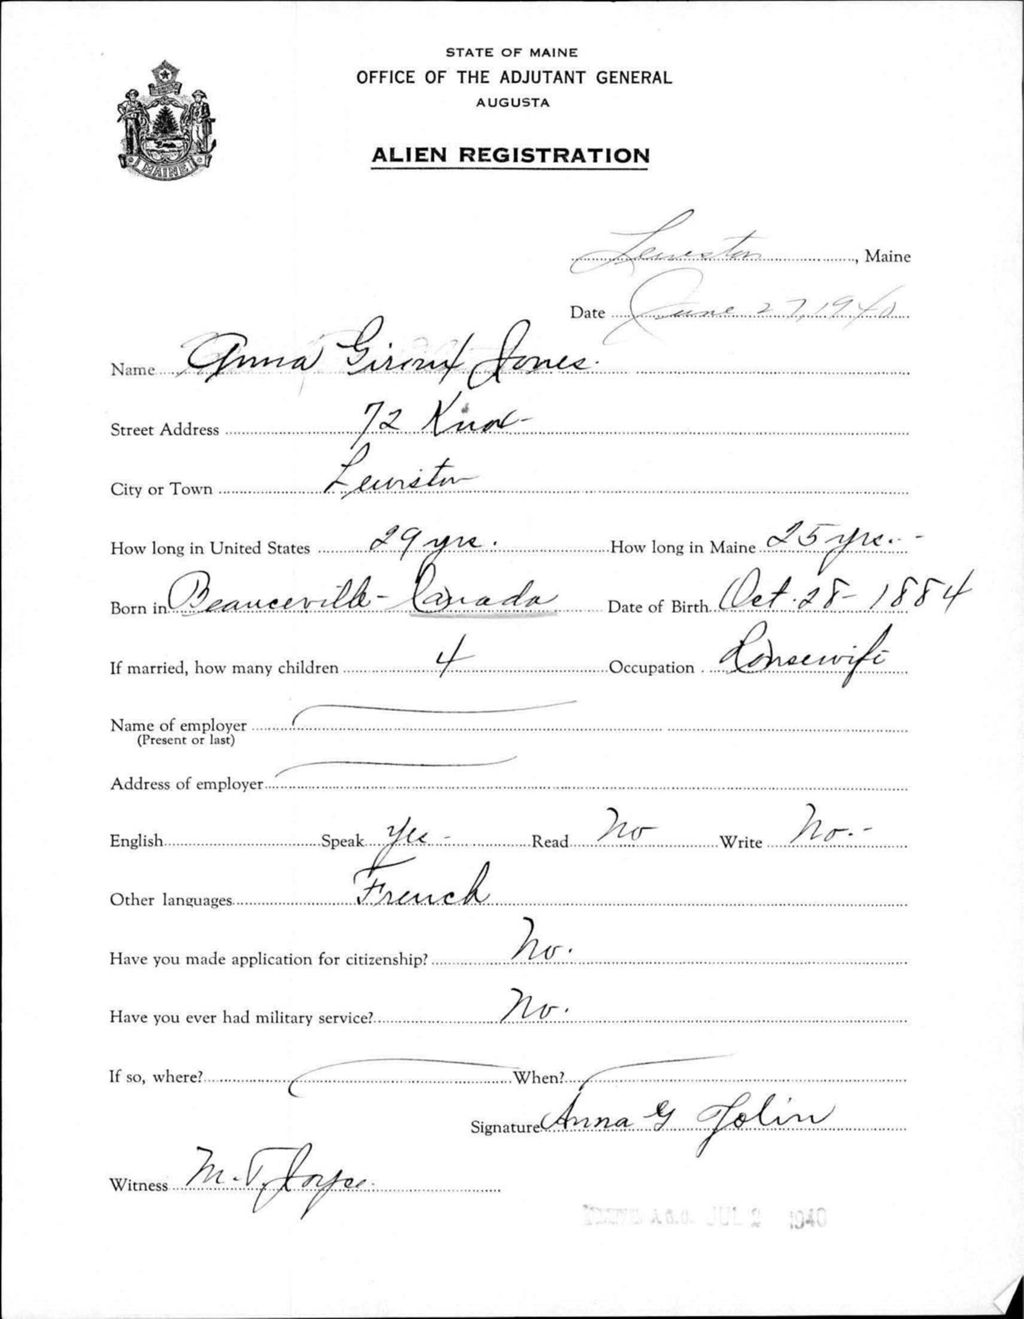 STATE OF MAINE
OFFICE OF THE ADJUTANT GENERAL
AUGUSTA
ALIEN REGISTRATION
MAINE
Lewiston, Maine
Date June 27, 1940
Name Anna Giroux Jones.
Street Address 72 Knox-
City or Town Lewiston
How long in United States 29 yrs. How long in Maine 25 yrs.-
Born in Beauceville - Canada Date of Birth Oct. 28 - 1884
If married, how many children 4 Occupation Housewife
Name of employer
(Present or last)
Address of employer
English Speak Yes - Read No Write No.-
Other languages French
Have you made application for citizenship? No.
Have you ever had military service? No.
If so, where? When?
Signature Anna G
Witness M. T. Joyce.
A.G.O. JUL 2 1940